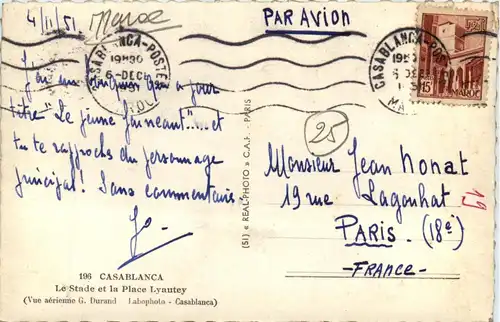 4/11/51
Maroc
PAR AVION
CASABLANCA-POSTE
19H30
6-DECE
MAROC
CASABLANCA-POSTE
19H30
6 DECE
15F MAROC
J'ai vu quelque chose à jour
titre "Le jeune fainéant"....et
tu te rapproches du personnage
principal! Sans commentaires.
Jo.
25
Monsieur Jean Monat
19 rue Lagouhat
PARIS. (18e)
-FRANCE-
19
(51) « REAL-PHOTO » C.A.P. - PARIS
196 CASABLANCA
Le Stade et la Place Lyautey
(Vue aérienne G. Durand Labophoto - Casablanca)